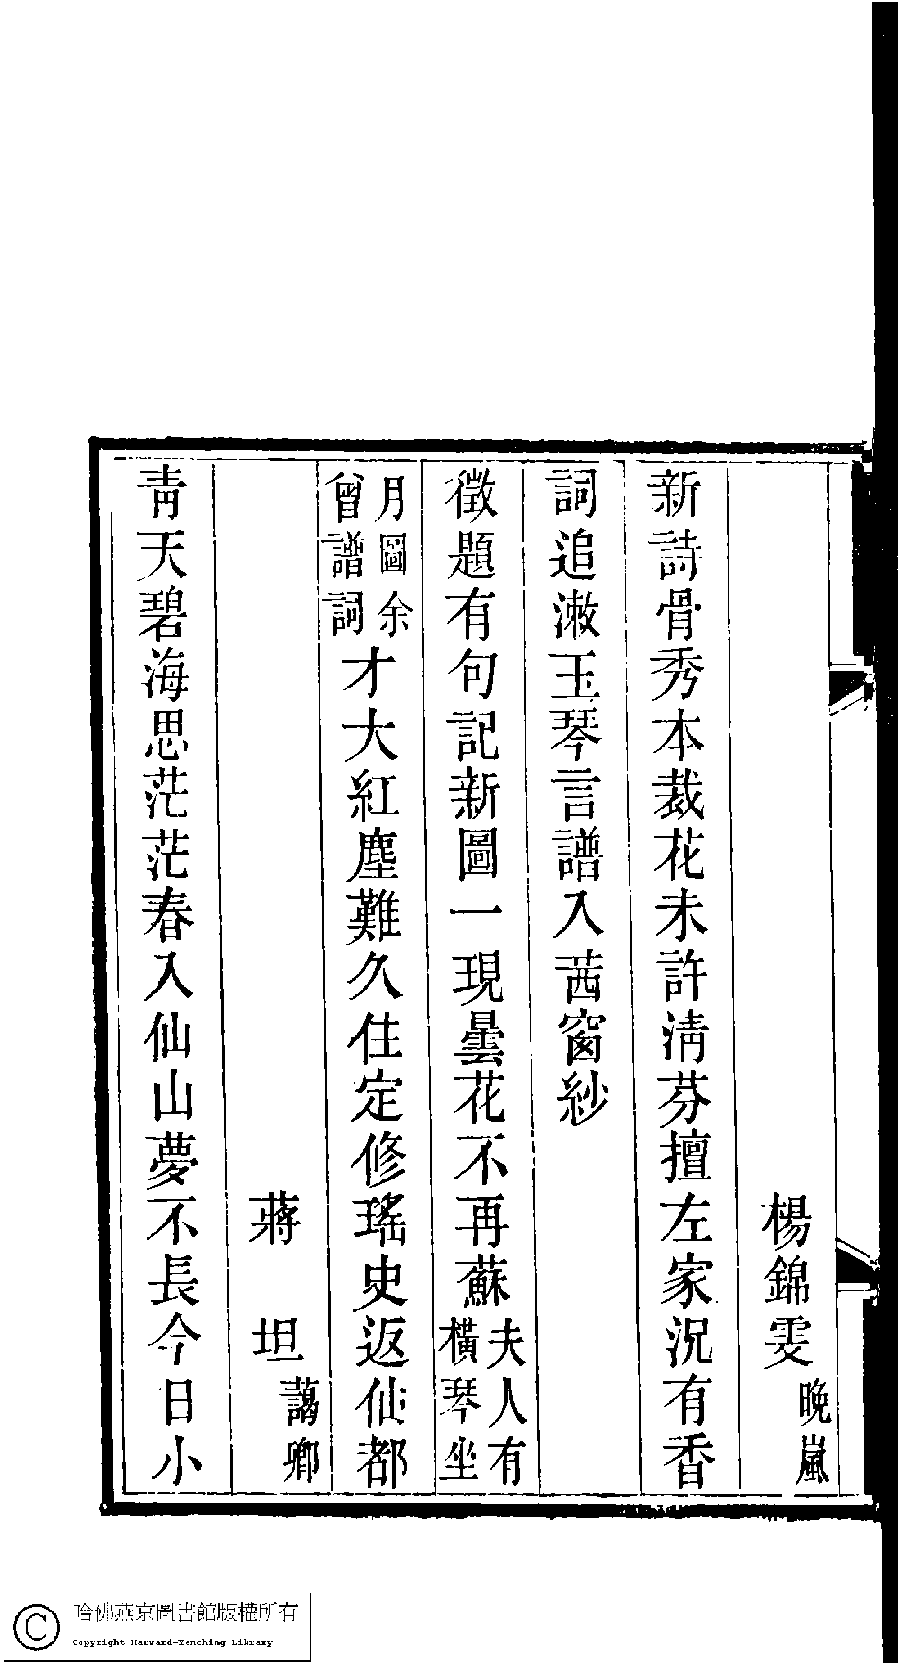 楊錦雯晚嵐
新詩骨秀本裁花未許淸芬擅左家況有香
詞追漱玉琴言譜入茜窗紗
徵題有句記新圖一現曇花不再蘇夫人有橫琴坐
月圖余曾譜詞才大紅塵難久住定修瑤史返仙都
蔣坦藹卿
靑天碧海思茫茫春入仙山夢不長今日小
哈佛燕京圖書館版權所有
Copyright Harvard-Yenching Library